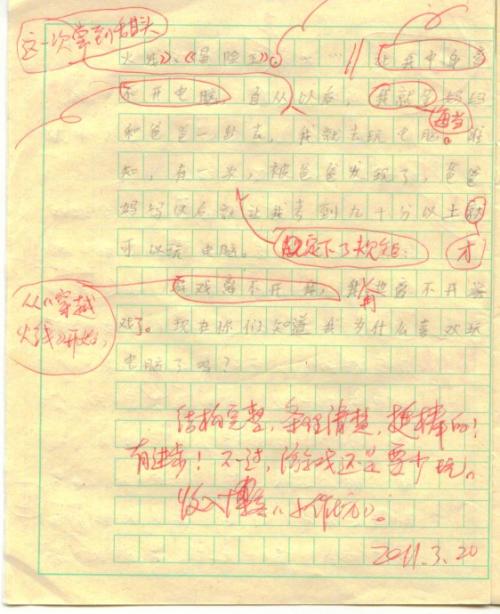 这一次尝到甜头
火线》、《冒险王》。……//
不开电脑。自从以后，我就等妈妈
每当
和爸爸一出去，我就去玩电脑。谁
知，有一次，被爸爸发现了，爸爸
妈妈
我考到九十分以上
才
可以玩电脑。
规定下了规矩：
从《穿越
火线》开始，
游戏离不开我，我
再
离不开游
戏了。现在你们知道我为什么喜欢玩
电脑了吗？
结构完整，条理清楚，挺棒的！
有进步！不过，游戏还是要少玩。
收入博客《小作坊》。
2011.3.20